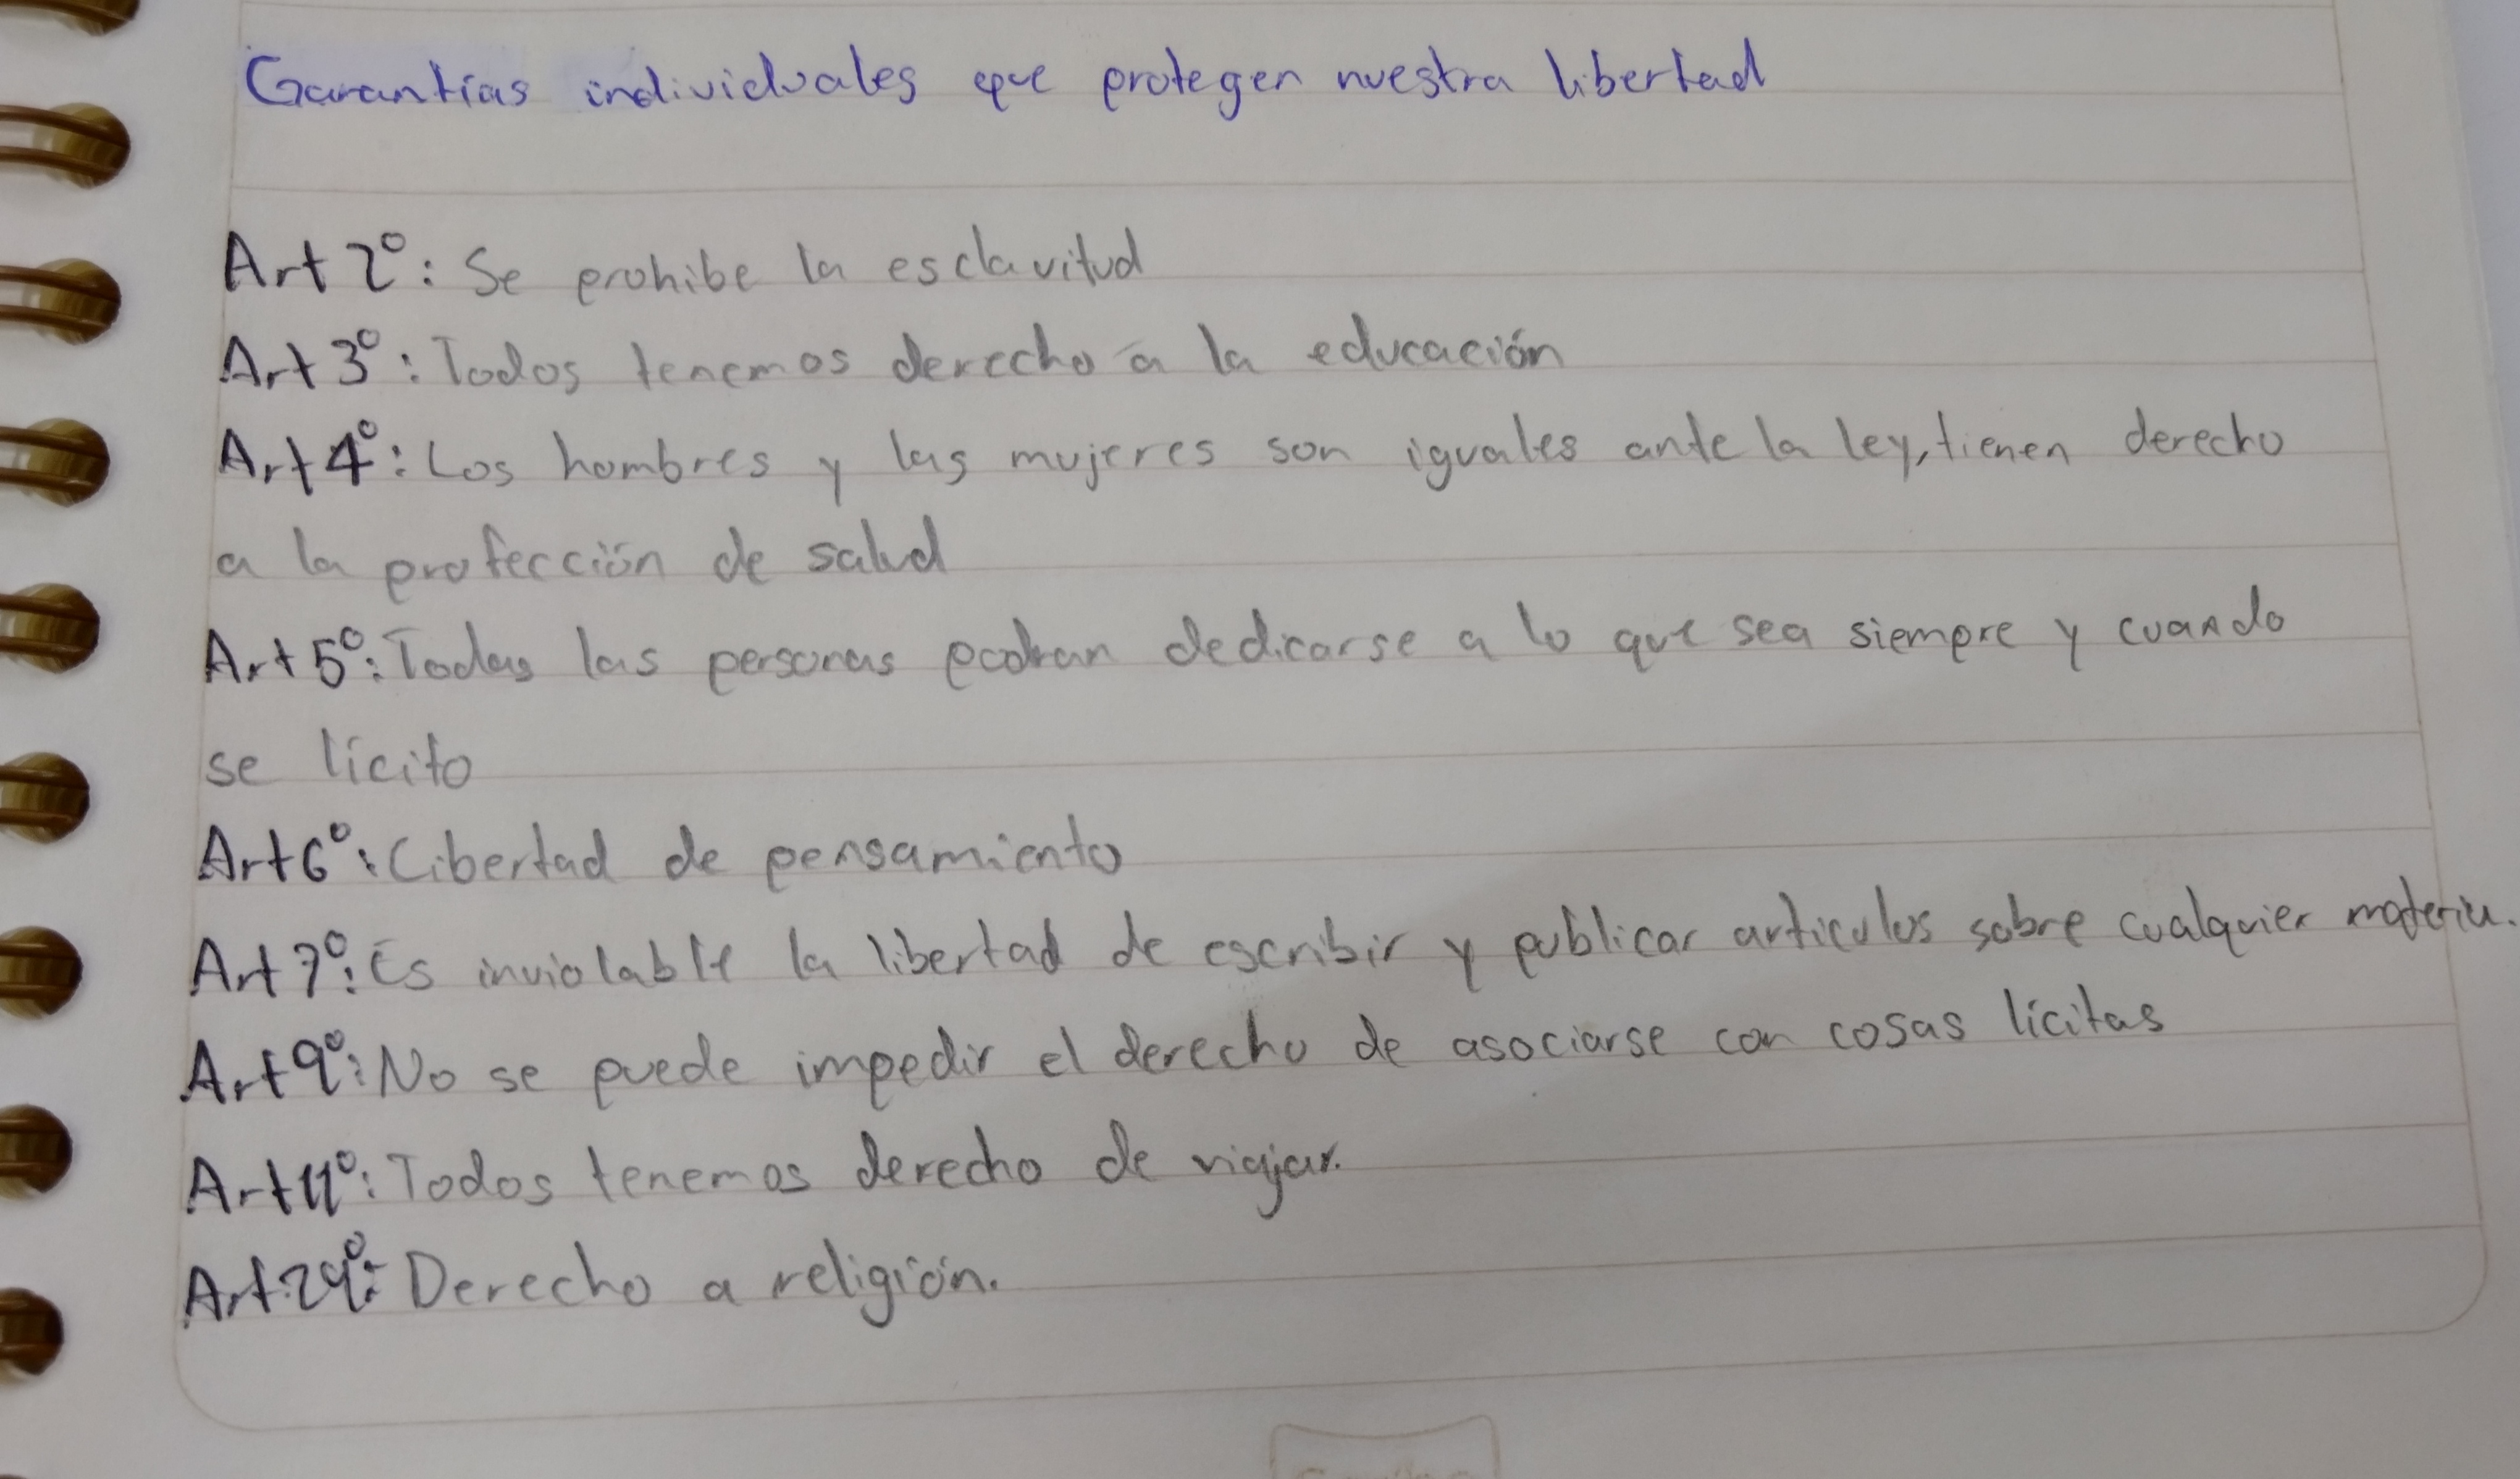 Garantías individuales que protegen nuestra libertad
Art 2°: Se prohibe la esclavitud
Art 3°: Todos tenemos derecho a la educación
Art 4°: Los hombres y las mujeres son iguales ante la ley, tienen derecho
a la protección de salud
Art 5°: Todas las personas podran dedicarse a lo que sea siempre y cuando
se lícito
Art 6°: Libertad de pensamiento
Art 7°: Es inviolable la libertad de escribir y publicar articulos sobre cualquier materia.
Art 9°: No se puede impedir el derecho de asociarse con cosas lícitas
Art 11°: Todos tenemos derecho de viajar.
Art 24°: Derecho a religión.